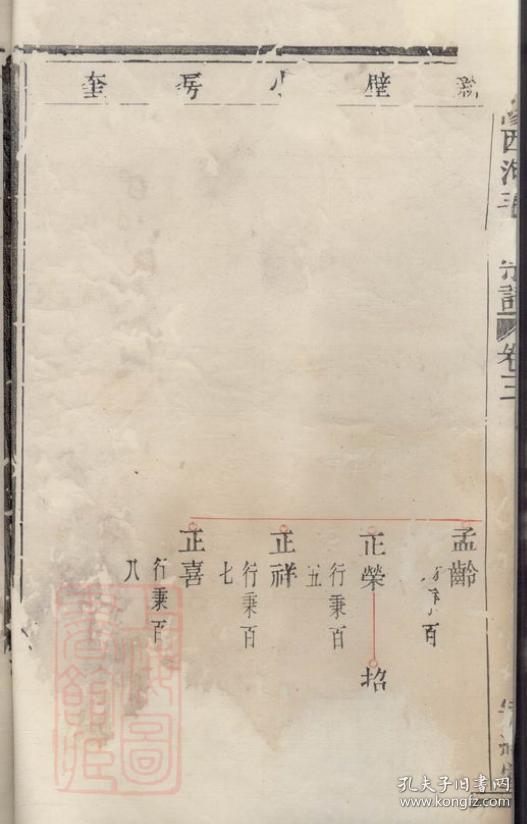 新壁小房奎
西河毛
宗譜 卷三
孟齡
百
正榮
行秉百
五
招
正祥
行秉百
七
正喜
行秉百
八
上海圖書館藏
孔夫子旧书网
www.kongfz.com